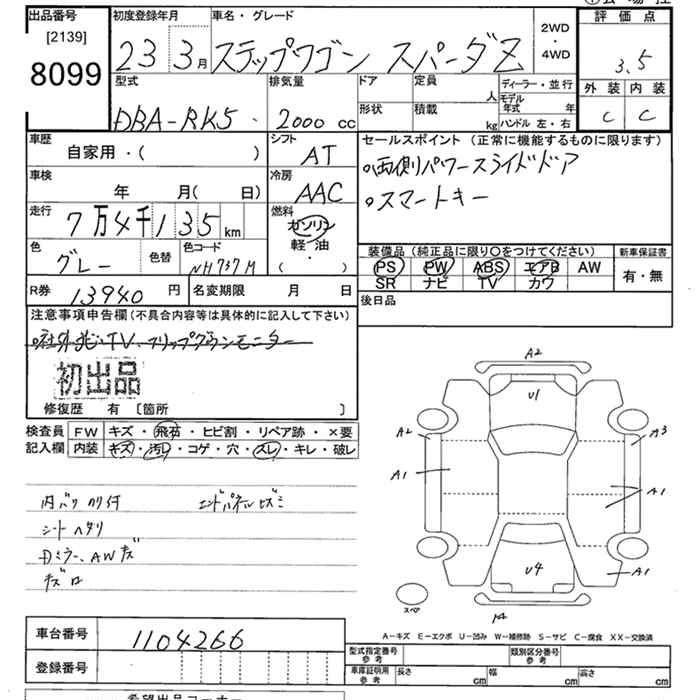 出品番号 [2139] 8099
初度登録年月 23年3月
車名・グレード ステップワゴン スパーダZ
2WD ・ 4WD
評価点 3.5
外装 C 内装 C
型式 DBA-RK5
排気量 2000 cc
ドア 形状
定員 人
積載 kg
ディーラー・並行
モデル年式 年
ハンドル 左・右
車歴 自家用・( )
シフト AT
車検 年 月( 日)
冷房 AAC
走行 7万4千135km
燃料 ガソリン 軽・油 ・ ( )
色 グレー 色替
色コード NH737M
R券 13940 円 名変期限 月 日
セールスポイント (正常に機能するものに限ります)
○両側パワースライドドア
○スマートキー
装備品(純正品に限り○をつけてください) 新車保証書
PS PW ABS エアB AW 有・無
SR ナビ TV カワ
後日品
注意事項申告欄(不具合内容等は具体的に記入して下さい)
○社外ナビ、TV、フリップダウンモニター
初出品
修復歴 有 [箇所 ]
検査員 FW キズ・飛石・ヒビ割・リペア跡・×要
記入欄 内装 キズ・汚レ・コゲ・穴・スレ・キレ・破レ
内バリ カリ付 エンドパネルヒズミ
シートヘタリ
Dミラー、AWキズ
A2
U1
A2 A3
A1 A1
U4 A1
スペア
A-キズ E-エクボ U-凹み W-補修跡 S-サビ C-腐食 XX-交換済
車台番号 1104266
型式指定番号 参考 類別区分番号 参考
登録番号
車庫証明用 参考 長さ cm 幅 cm 高さ cm
希望出品コーナー